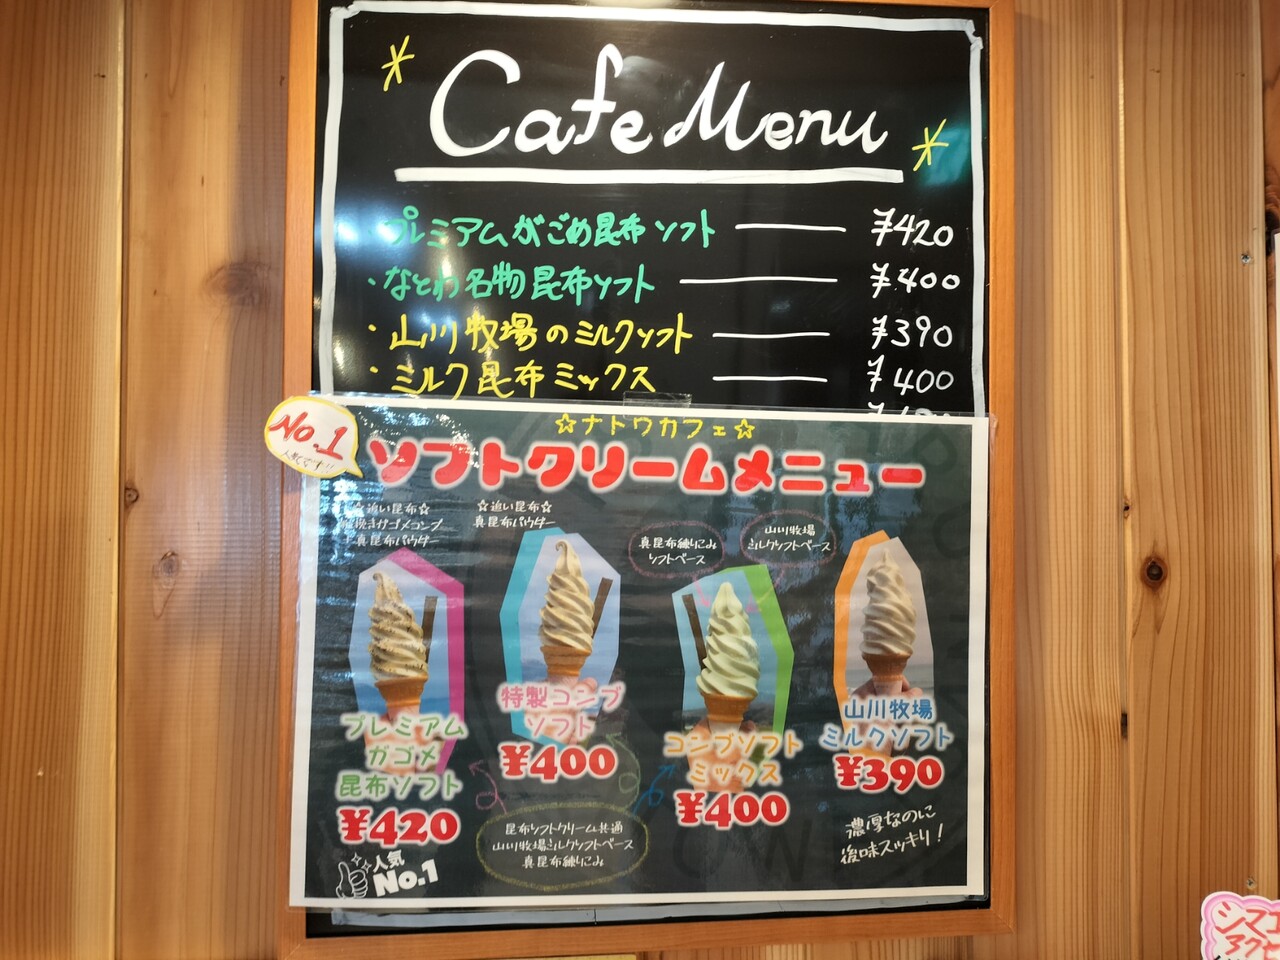 Cafe Menu
・プレミアムがごめ昆布ソフト ¥420
・なとわ名物昆布ソフト ¥400
・山川牧場のミルクソフト ¥390
・ミルク昆布ミックス ¥400
No.1
☆ナトワカフェ☆
ソフトクリームメニュー
☆追い昆布☆
ガゴメコンブ
真昆布パウダー
☆追い昆布☆
真昆布パウダー
真昆布練りこみ
ソフトベース
山川牧場
ミルクソフトベース
プレミアム
ガゴメ
昆布ソフト
¥420
人気
No.1
特製コンブ
ソフト
¥400
コンブソフト
ミックス
¥400
山川牧場
ミルクソフト
¥390
昆布ソフトクリーム共通
山川牧場ミルクソフトベース
真昆布練りこみ
濃厚なのに
後味スッキリ!